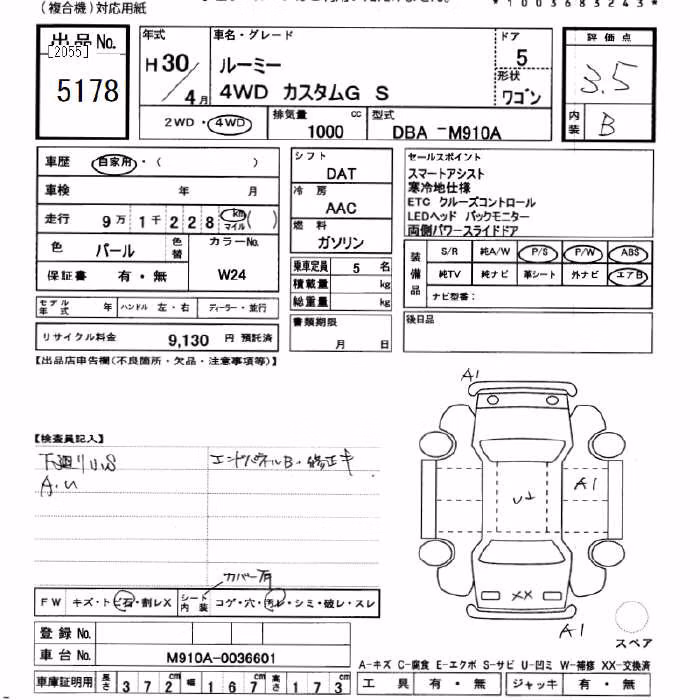 (複合機)対応用紙
*1003683243*
出品No.
[2055]
5178
年式
H30/4月
車名・グレード
ルーミー
4WD カスタムG S
ドア
5
形状
ワゴン
評価点
3.5
内装
B
2WD・4WD
排気量
1000 cc
型式
DBA -M910A
車歴 自家用・( )
車検 年 月
走行 9万1千228 km マイル ( )
色 パール 色替
カラーNo.
W24
保証書 有・無
シフト
DAT
冷房
AAC
燃料
ガソリン
乗車定員 5 名
積載量 kg
総重量 kg
書類期限
月 日
セールスポイント
スマートアシスト
寒冷地仕様
ETC クルーズコントロール
LEDヘッド バックモニター
両側パワースライドドア
装備品
S/R 純A/W P/S P/W ABS
純TV 純ナビ 革シート 外ナビ エアB
ナビ型番:
後日品
モデル年式 年 ハンドル 左・右 ディーラー・並行
リサイクル料金 9,130 円 預託済
【出品店申告欄(不良箇所・欠品・注意事項等)】
【検査員記入】
下廻りU,S
A.U
エンドパネルB・修正キ
A1
A1
U+
XX
A1
カバー有
FW キズ・トビ石・割レX
シート内装 コゲ・穴・汚レ・シミ・破レ・スレ
スペア
登録No.
車台No. M910A-0036601
A-キズ C-腐食 E-エクボ S-サビ U-凹ミ W-補修 XX-交換済
車庫証明用 長さ 372 cm 幅 167 cm 高さ 173 cm
工具 有・無 ジャッキ 有・無